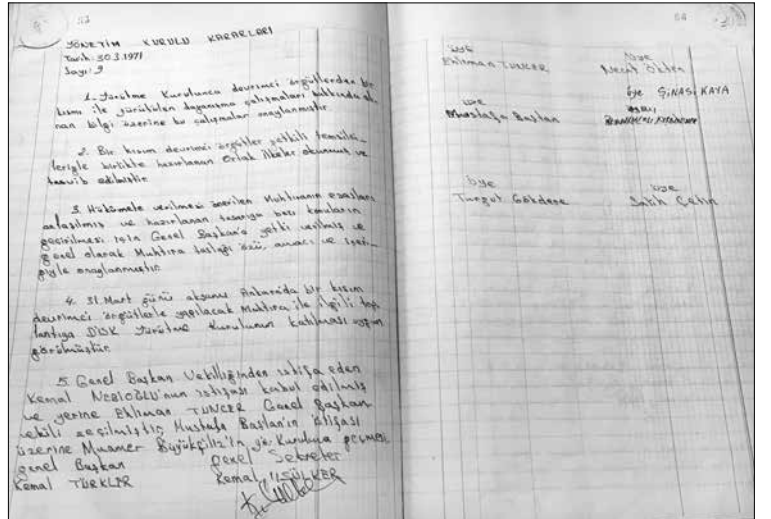 53
YÖNETİM KURULU KARARLARI
Tarih: 30.3.1971
Sayı: 9
1. Yürütme Kurulunca devrimci örgütlerden bir
kısmı ile yürütülen dayanışma çalışmaları hakkında alı-
nan bilgi üzerine bu çalışmalar onaylanmıştır.
2. Bir kısım devrimci örgütler yetkili temsilci-
leriyle birlikte hazırlanan Ortak ilkeler okunmuş ve
tasvib edilmiştir.
3. Hükümete verilmesi önerilen Muhtıranın esasları
anlaşılmış ve hazırlanan tasarıya bazı konuların
geçirilmesi için Genel Başkan'a yetki verilmiş ve
genel olarak Muhtıra taslağı özü, amacı ve içeri-
ğiyle onaylanmıştır.
4. 31. Mart günü akşamı Ankara'da bir kısım
devrimci örgütlerle yapılacak Muhtıra ile ilgili top-
lantıya DİSK Yürütme Kurulunun katılması uygun
görülmüştür.
5. Genel Başkan Vekilliğinden istifa eden
Kemal NEBİOĞLU'nun istifası kabul edilmiş
ve yerine Ehliman TUNCER Genel Başkan
vekili seçilmiştir. Mustafa Baştan'ın istifası
üzerine Muamer Büyükçiliz'in yür. Kuruluna geçmesi
Genel Başkan Genel Sekreter
Kemal TÜRKLER Kemal SÜLKER
54
üye üye
Ehliman TUNCER Necat Ökten
üye ŞİNASİ KAYA
üye
Mustafa Baştan
üye üye
Turgut Gökdere Salih Çetin